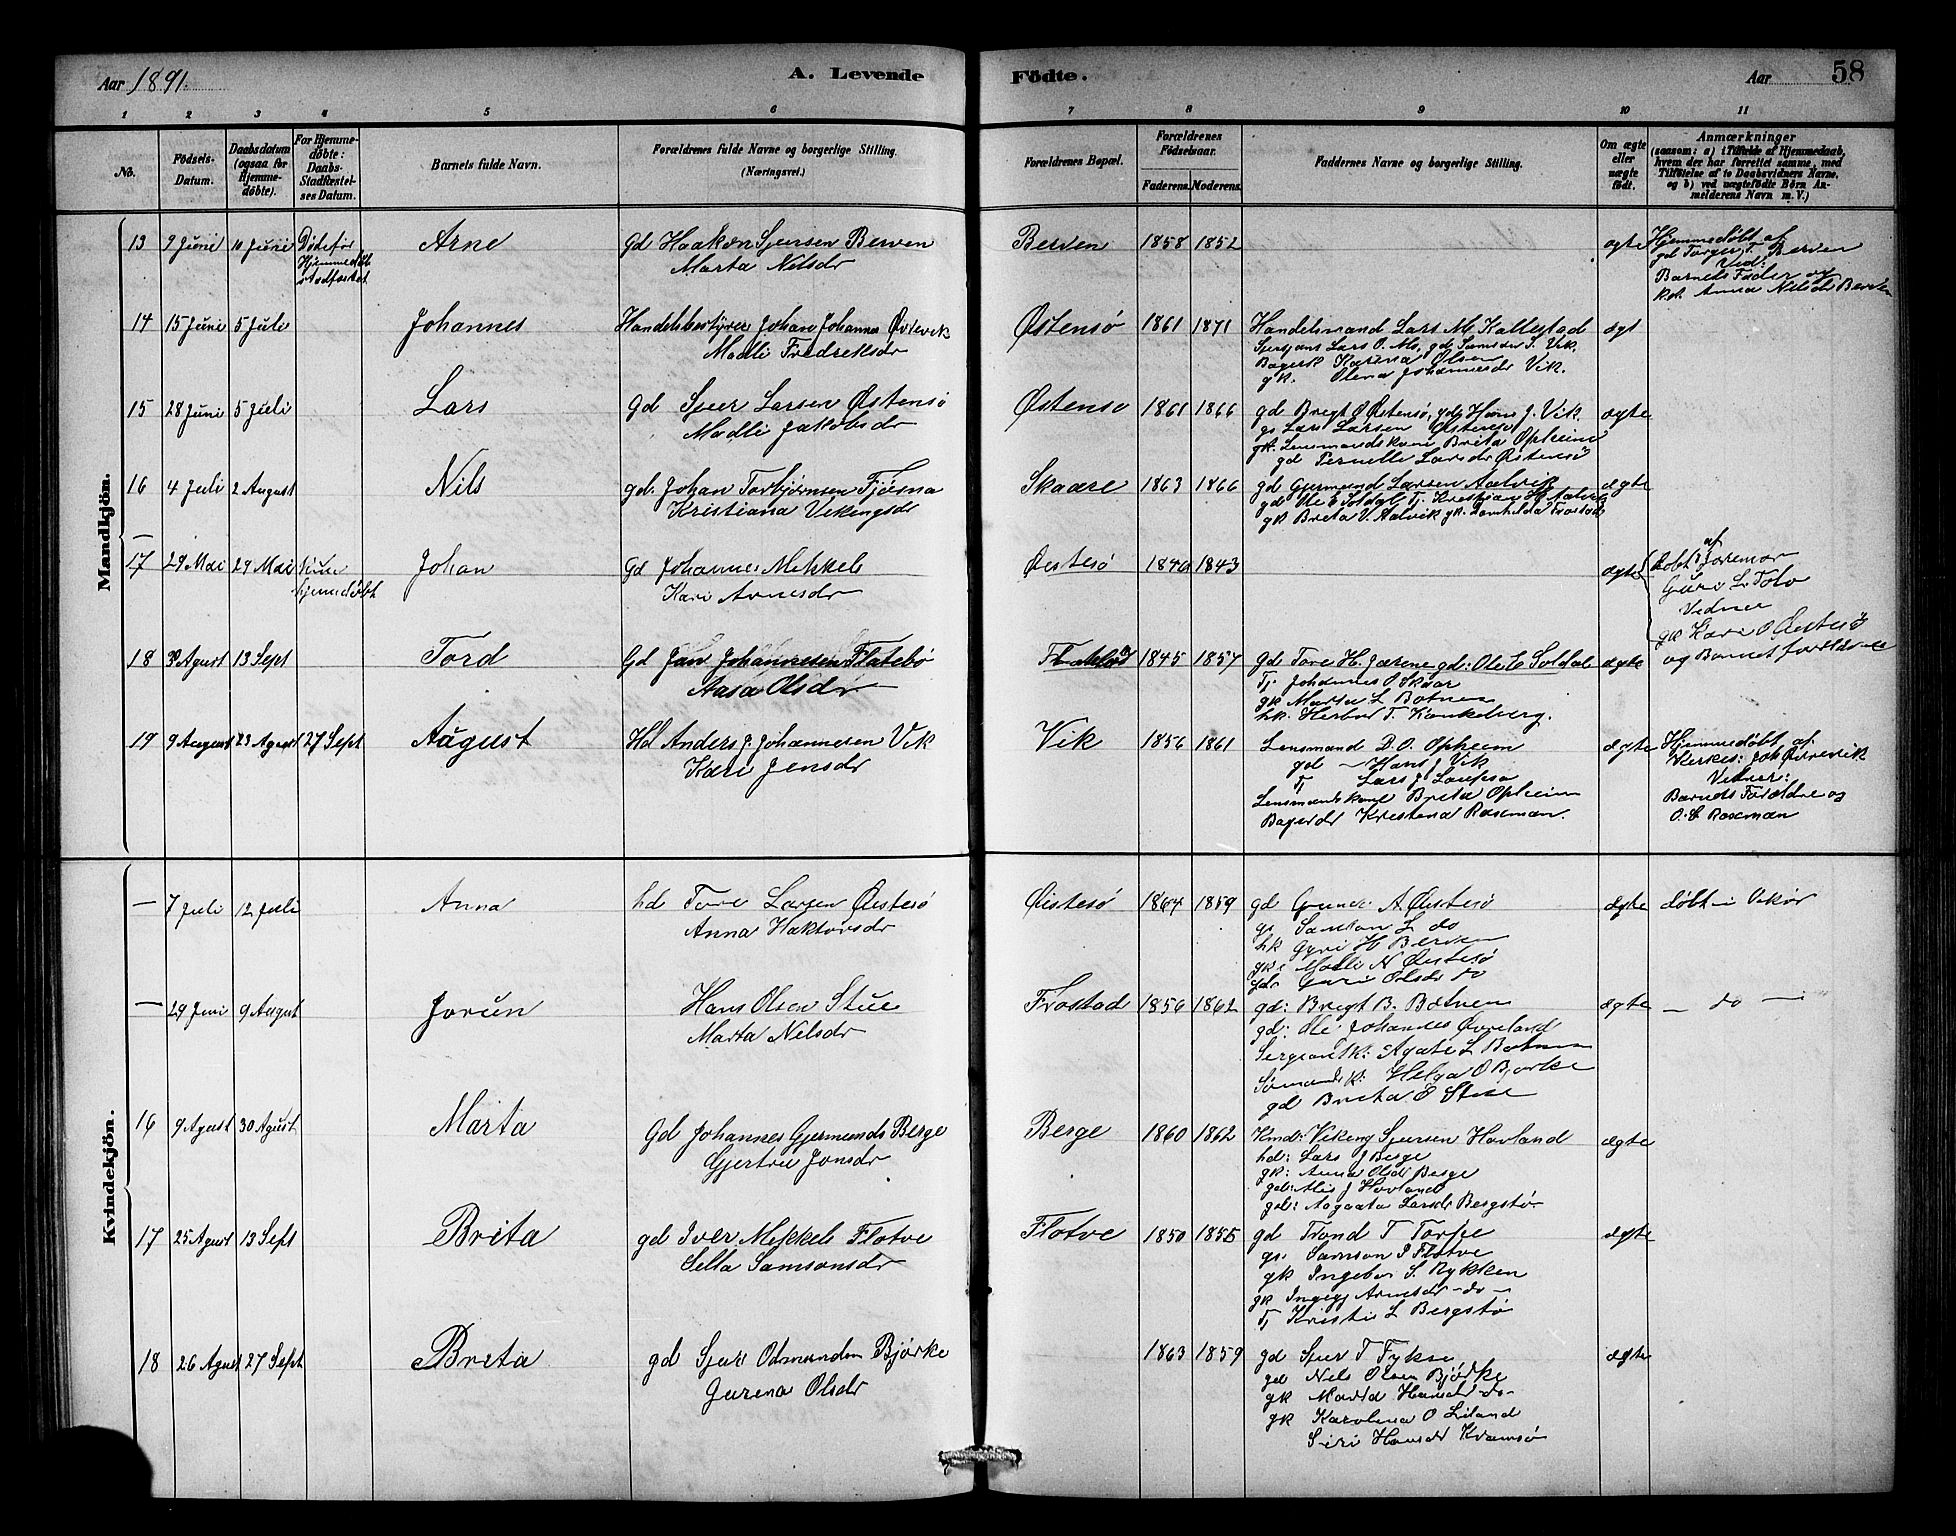 Aar 1891.
A. Levende Fødte.
Aar 58
1 2 3 4 5 6 7 8 9 10 11
No.
Fødsels-Datum.
Daabsdatum (ogsaa for Hjemme-døbte).
For Hjemme-døbte: Daabs-Stadfæstel-ses Datum.
Barnets fulde Navn.
Forældrenes fulde Navne og borgerlige Stilling. (Næringsvei.)
Forældrenes Bopæl.
Forældrenes Fødselsaar.
Faderens. Moderens.
Faddernes Navne og borgerlige Stilling.
Om ægte eller uægte født.
Anmærkninger
(saasom: a) i Tilfælde af Hjemmedaab,
hvem der har forrettet samme, med
Tilføielse af to Daabsvidners Navne,
og b) ved uægtefødte Børn An-
melderens Navn m. V.)
Mandkjön.
13 9 Juni 10 Juni Døde før Hjemmedøb stadfæstet Arne Gd Haakon Sjursen Berven
Marta Nilsdr
Berven 1858 1852 ægte Hjemmedøbt af
gd Torger T Berven
Ved:
Barnets Fader og
kd. Anna Nilsdr Berven
14 15 Juni 5 Juli Johannes Handelsbestyrer Johan Johannes Øvrevik
Madli Fredriksdr
Østensø 1861 1871 Handelsmand Lars M. Kallestad ægt
Lars O. gd Samson S. Vik.
Bagersk Karina Olsen
gk. Olena Johannesdr Vik.
15 28 Juni 5 Juli Lars Gd Sjur Larsen Østensø
Madli Jakobsdr
Østensø 1861 1866 gd Brigt O Østensø, gd Hans J. Vik. ægte
gs Lars Larsen Østensø
gk. Lensmandskone Brita Opheim
gd Pernelle Larsdr Østensø
16 4 Juli 2 August Nils gd. Johan Torbjørnsen Fjøsna
Kristiana Vikingsdr
Skaare 1863 1866 gd Gjermund Larsen Aalvik ægte
gd Ole E Soldal, Tj. Kristian Aalvik
gk Brita V. Aalvik gk. Frostad
17 29 Mai 29 Mai Kun hjemmedøbt Johan Gd Johannes Mikkels
Kari Arnesdr
Øistesø 1840 1843 ægte døbt af Joremor
Guri L. Tolo
Vidner
gk Kari O Øistesø
og Barnets forældre
18 30 Agust 13 Sept Tord Gd Jan Johannesen Flatebø
Aasa Olsdr
Flatebø 1845 1857 Gd Tore H. Jærene gd: Ole E Soldal ægte
Tj. Johannes O Skaar
gk Marta L Botnen
hk. T. Kankeberg.
19 9 August 23 Agust 27 Sept August Hd Anders J. Johannesen Vik
Kari Jensdr
Vik 1856 1861 Lensmand B. O. Opheim ægte
gd — Hans J Vik
Tj Lars J
Lensmandskone Brita Opheim
Bager dr Kristena Roseman.
Hjemmedøbt af
Kirkes: Joh Øvrevik
Vidner:
Barnets Forældre og
O. L Roseman
Kvindekjön.
— 7 Juli 12 Juli Anna hd Tore Larsen Øistesø
Anna Haktorsdr
Øistesø 1864 1859 gd A Øistesø ægte døbt i Vikør
gs Samson L do
hk Gyri H Berven
gk: Madli N Øistesø
gd Guri Olsdr do
— 29 Juni 9 August Jorun Hans Olsen Stue
Marta Nilsdr
Frostad 1856 1862 gd: Brigt B. Botnen ægte — do —
gd: Ole Johannes Øvreland
Sergeantk: Agate L Botnen
Sømandsk: Helga O Bjørke
gd Brita E Stue
16 9 Agust 30 Agust Marta Gd Johannes Gjermunds Berge
Gjertru Jonsdr
Berge 1860 1862 Kmd: Viking Sjursen Hovland ægte
hd: Lars J Berge
gk: Anna Olsdr Berge
gd: J Hovland
gd: Aagaata Larsdr Bergstø
17 25 Agust 13 Sept Brita gd Iver Mikkels Flotve
Silla Samsonsdr
Flotve 1850 1855 gd Trond T Torpe ægte
gs. Samson I Flotve
gk Ingebor S. Nykken
gk Ingigj Arnesdr — do —
Tj Kristi L Bergstø
18 26 Agust 27 Sept Brita gd Sjur Odmundsen Bjørke
Gurina Olsdr
1863 1859 gd Sjur T Fykse ægte
gd Nils Olsen Bjørke
gk Marta Hansdr do
gk Karolina O Leiland
Siri Hansdr Kvamsø